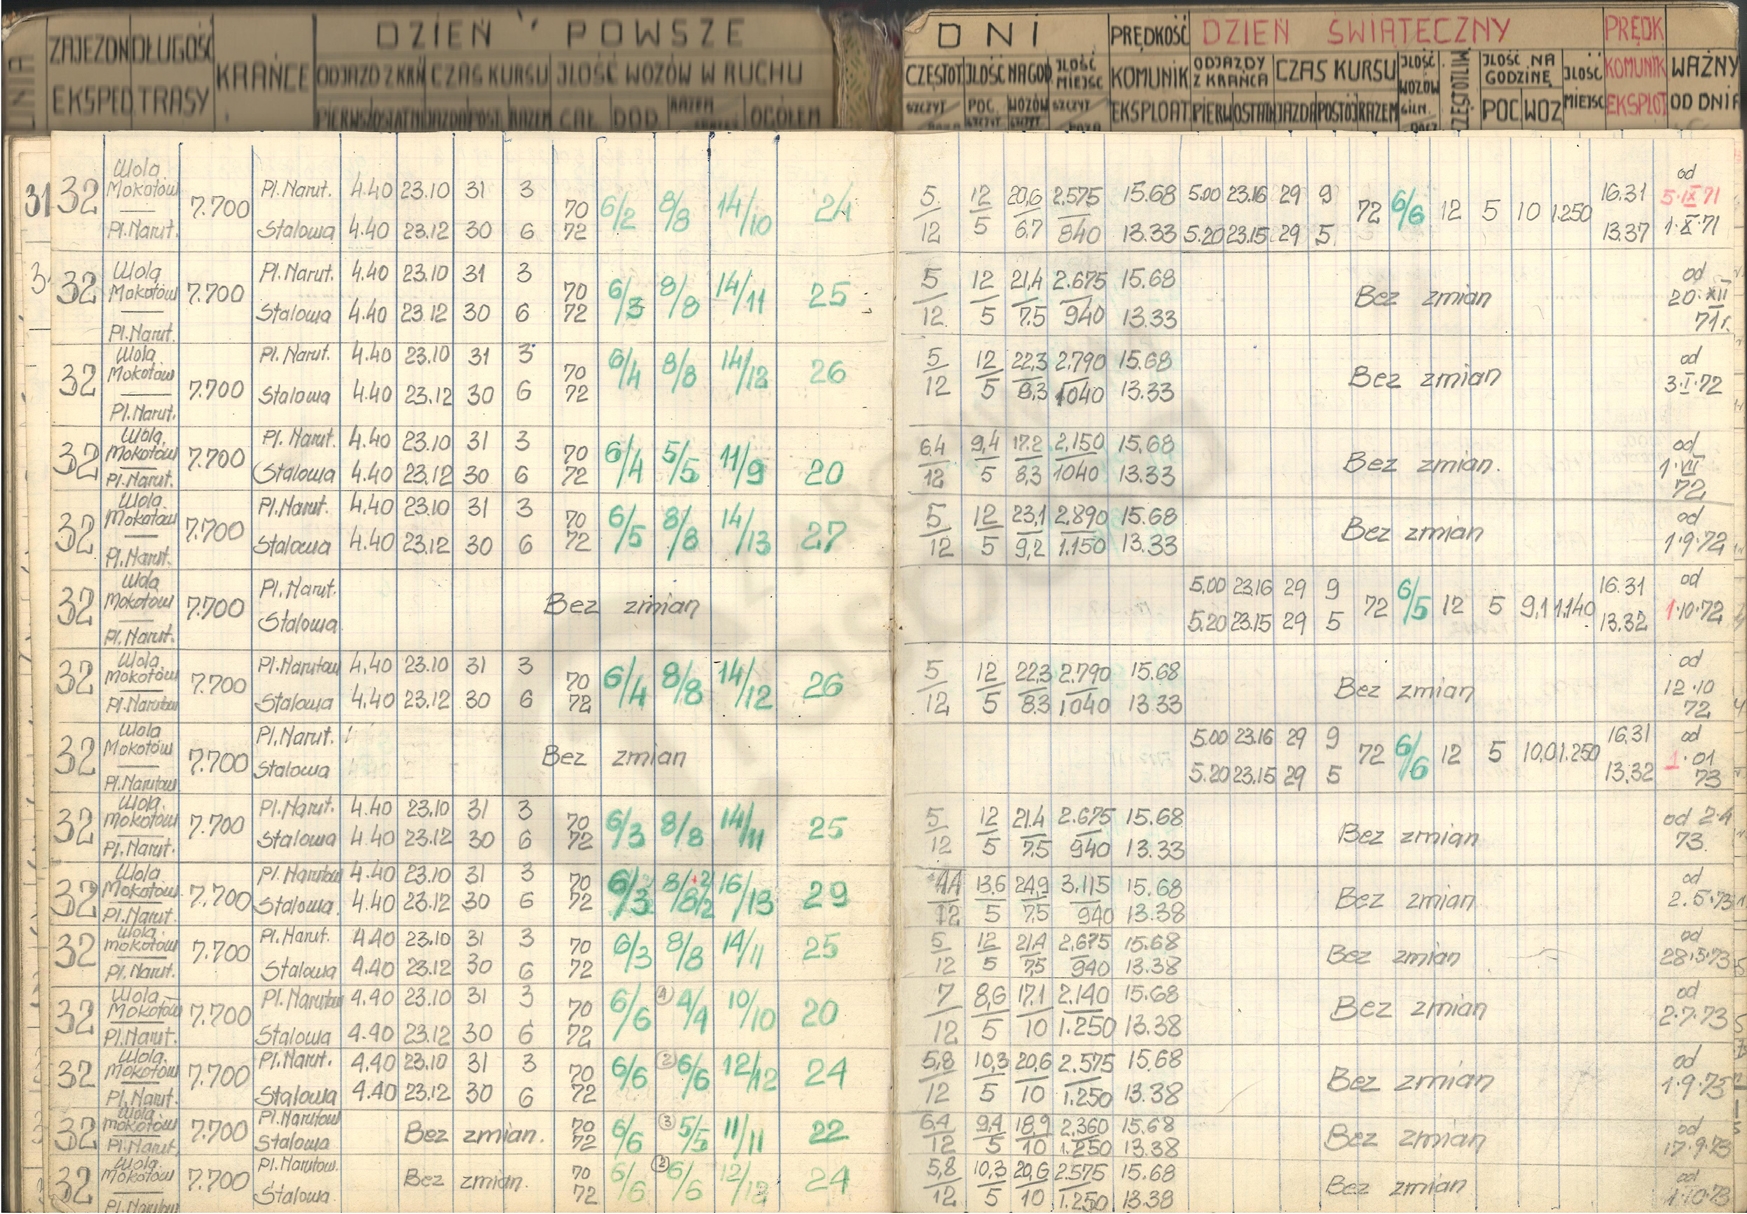 LINIA ZAJEZDN EKSPED DŁUGOŚĆ TRASY KRAŃCE DZIEŃ POWSZE
ODJAZD Z KRAŃ CZAS KURSU ILOŚĆ WOZÓW W RUCHU
PIERWSZ OSTATN JAZDA POST. RAZEM CAŁ. DOD. RAZEM OGÓŁEM
DNI PRĘDKOŚĆ KOMUNIK EKSPLOAT. DZIEŃ ŚWIĄTECZNY PRĘDK KOMUNIK EKSPLOT WAŻNY OD DNIA
CZĘSTOT ILOŚĆ NA GOD ILOŚĆ MIEJSC ODJAZDY Z KRAŃCA CZAS KURSU ILOŚĆ WOZÓW ILOŚĆ NA GODZINĘ ILOŚĆ MIEJSC
SZCZYT POC. WOZÓW SZCZYT PIERW OSTATN JAZDA POSTÓJ RAZEM POC WOZ
31 32 Wola Mokotów Pl.Narut. 7.700 Pl.Narut. 4.40 23.10 31 3 70 6/2 8/8 14/10 24 5 12 20,6 2.575 15.68 5.00 23.16 29 9 72 6/6 12 5 10 1.250 16.31 od 5.IX.71
Stalowa 4.40 23.12 30 6 72 12 5 6.7 840 13.33 5.20 23.15 29 5 13.37 1.X.71
32 Wola Mokotów Pl.Narut. 7.700 Pl.Narut. 4.40 23.10 31 3 70 6/3 8/8 14/11 25 5 12 21,4 2.675 15.68 Bez zmian od 20.XII 71r.
Stalowa 4.40 23.12 30 6 72 12 5 7.5 940 13.33
32 Wola Mokotów Pl.Narut. 7.700 Pl.Narut. 4.40 23.10 31 3 70 6/4 8/8 14/12 26 5 12 22,3 2.790 15.68 Bez zmian od 3.I.72
Stalowa 4.40 23.12 30 6 72 12 5 8,3 1040 13.33
32 Wola Mokotów Pl.Narut. 7.700 Pl.Narut. 4.40 23.10 31 3 70 6/4 5/5 11/9 20 6,4 9,4 17.2 2,150 15.68 Bez zmian. od 1.VII 72
Stalowa 4.40 23.12 30 6 72 12 5 8,3 1040 13.33
32 Wola Mokotów Pl.Narut. 7.700 Pl.Narut. 4.40 23.10 31 3 70 6/5 8/8 14/13 27 5 12 23,1 2,890 15.68 Bez zmian od 1.9.72
Stalowa 4.40 23.12 30 6 72 12 5 9,2 1.150 13.33
32 Wola Mokotów Pl.Narut. 7.700 Pl.Narut. Bez zmian 5.00 23.16 29 9 72 6/5 12 5 9,1 1.140 16.31 od 1.10.72
Stalowa 5.20 23.15 29 5 13.32
32 Wola Mokotów Pl.Narutow 7.700 Pl.Narutow 4.40 23.10 31 3 70 6/4 8/8 14/12 26 5 12 22,3 2.790 15.68 Bez zmian od 12.10 72
Stalowa 4.40 23.12 30 6 72 12 5 8.3 1040 13.33
32 Wola Mokotów Pl.Narutow 7.700 Pl.Narut. Bez zmian 5.00 23.16 29 9 72 6/6 12 5 10,0 1.250 16.31 od 1.01 73
Stalowa 5.20 23.15 29 5 13.32
32 Wola Mokotów Pl.Narut. 7.700 Pl.Narut. 4.40 23.10 31 3 70 6/3 8/8 14/11 25 5 12 21.4 2.675 15.68 Bez zmian od 2.4 73.
Stalowa 4.40 23.12 30 6 72 12 5 7.5 940 13.33
32 Wola Mokotów Pl.Narut. 7.700 Pl.Narutow 4.40 23.10 31 3 70 6/3 8/8 +2/2 16/13 29 4,4 13,6 24,9 3.115 15.68 Bez zmian od 2.5.73
Stalowa. 4.40 23.12 30 6 72 12 5 7.5 940 13.38
32 Wola Mokotów Pl.Narut. 7.700 Pl.Narut. 4.40 23.10 31 3 70 6/3 8/8 14/11 25 5 12 21,4 2.675 15.68 Bez zmian od 28.5.73
Stalowa 4.40 23.12 30 6 72 12 5 7.5 940 13.38
32 Wola Mokotów Pl.Narut. 7.700 Pl.Narutow 4.40 23.10 31 3 70 6/6 (4) 4/4 10/10 20 7 8,6 17.1 2.140 15.68 Bez zmian od 2.7.73
Stalowa 4.40 23.12 30 6 72 12 5 10 1.250 13.38
32 Wola Mokotów Pl.Narut. 7.700 Pl.Narut. 4.40 23.10 31 3 70 6/6 (2) 6/6 12/12 24 5,8 10,3 20,6 2.575 15.68 Bez zmian od 1.9.73
Stalowa 4.40 23.12 30 6 72 12 5 10 1.250 13.38
32 Wola Mokotów Pl.Narut 7.700 Pl.Narutow Bez zmian. 70 6/6 (3) 5/5 11/11 22 6,4 9,4 18,9 2,360 15.68 Bez zmian od 17.9.73
Stalowa 72 12 5 10 1.250 13.38
32 Wola Mokotów Pl.Narutow 7.700 Pl.Narutow. Bez zmian. 70 6/6 (2) 6/6 12/12 24 5,8 10,3 20,6 2.575 15.68 Bez zmian od 1.10.73
Stalowa 72 12 5 10 1.250 13.38